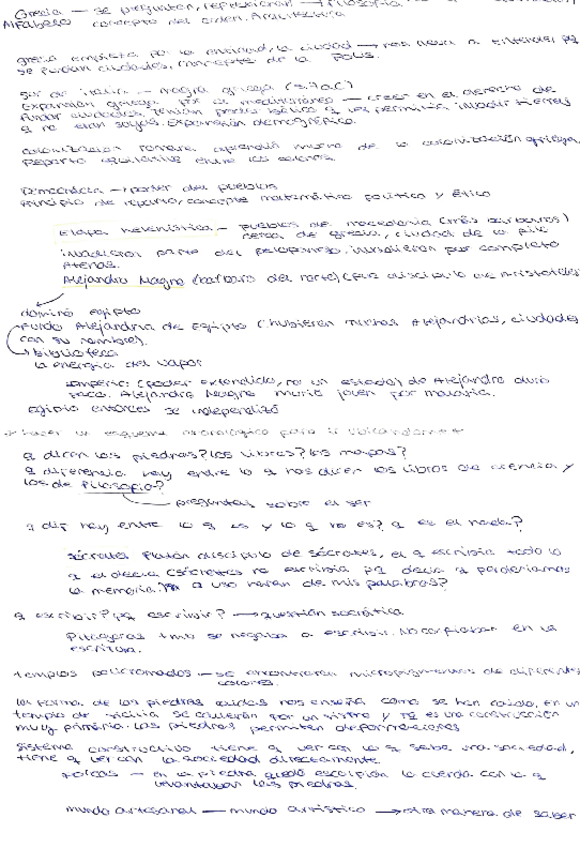 Grecia — se preguntan, representan → filosofía
Alfabeto concepto del orden. Arquitectura
Grecia empieza por la ciudad →
se fundan ciudades, concepto de la Polis.
sur de Italia — magna grecia (s.7 a.C)
Expansión griega por el mediterráneo — creer en el derecho de
fundar ciudades, tenían poder bélico q les permitía invadir tierras
q no eran suyas. Expansión demográfica.
colonización romana aprendió mucho de la colonización griega.
Reparto equitativo entre los colonos.
Democracia → poder del pueblos
Principio de reparto, concepto matemático político y ético
Etapa helenística — pueblos de macedonia (más barbaros)
cerca de grecia, ciudad de la
invadieron parte del peloponeso, invadieron por completo
Atenas.
Alejandro Magno (barbaro del norte) (fue discípulo de Aristóteles)
dominó egipto
Fundó Alejandría de Egipto (hubieron muchas Alejandrías, ciudades
con su nombre).
→ biblioteca
la energía del vapor
imperio (poder extendido, no un estado) de Alejandro duró
poco. Alejandro Magno murió joven por malaria.
Egipto entonces se independizó
→ hacer un esquema cronológico para ir ubicandome ←
q dicen las piedras? los libros? los mapas?
q diferencia hay entre lo q nos dicen los libros de ciencia y
los de filosofía?
preguntas sobre el ser
q dif hay entre lo q es y lo q no es? q es el nada?
Sócrates Platón discípulo de sócrates, el q escribía todo lo
q el decía (sócrates no escribía pq decía q perderíamos
la memoria. q uso harán de mis palabras?
q escribir? pq escribir? → cuestión socrática
Pitágoras tmb se negaba a escribir. No confiaban en la
escritura.
templos policromados — se encontraron micropigmentos de diferentes
colores.
la forma de las piedras caídas nos enseña como se han caído, en un
templo de sicilia se cayeron por un sismo y es una construcción
muy primaria. las piedras permiten deformaciones
sistema constructivo tiene q ver con lo q sabe una sociedad,
tiene q ver con la sociedad directamente.
— en la piedra quedó la cuerda con la q
levantaban las piedras.
mundo artesanal — mundo artístico → otra manera de saber